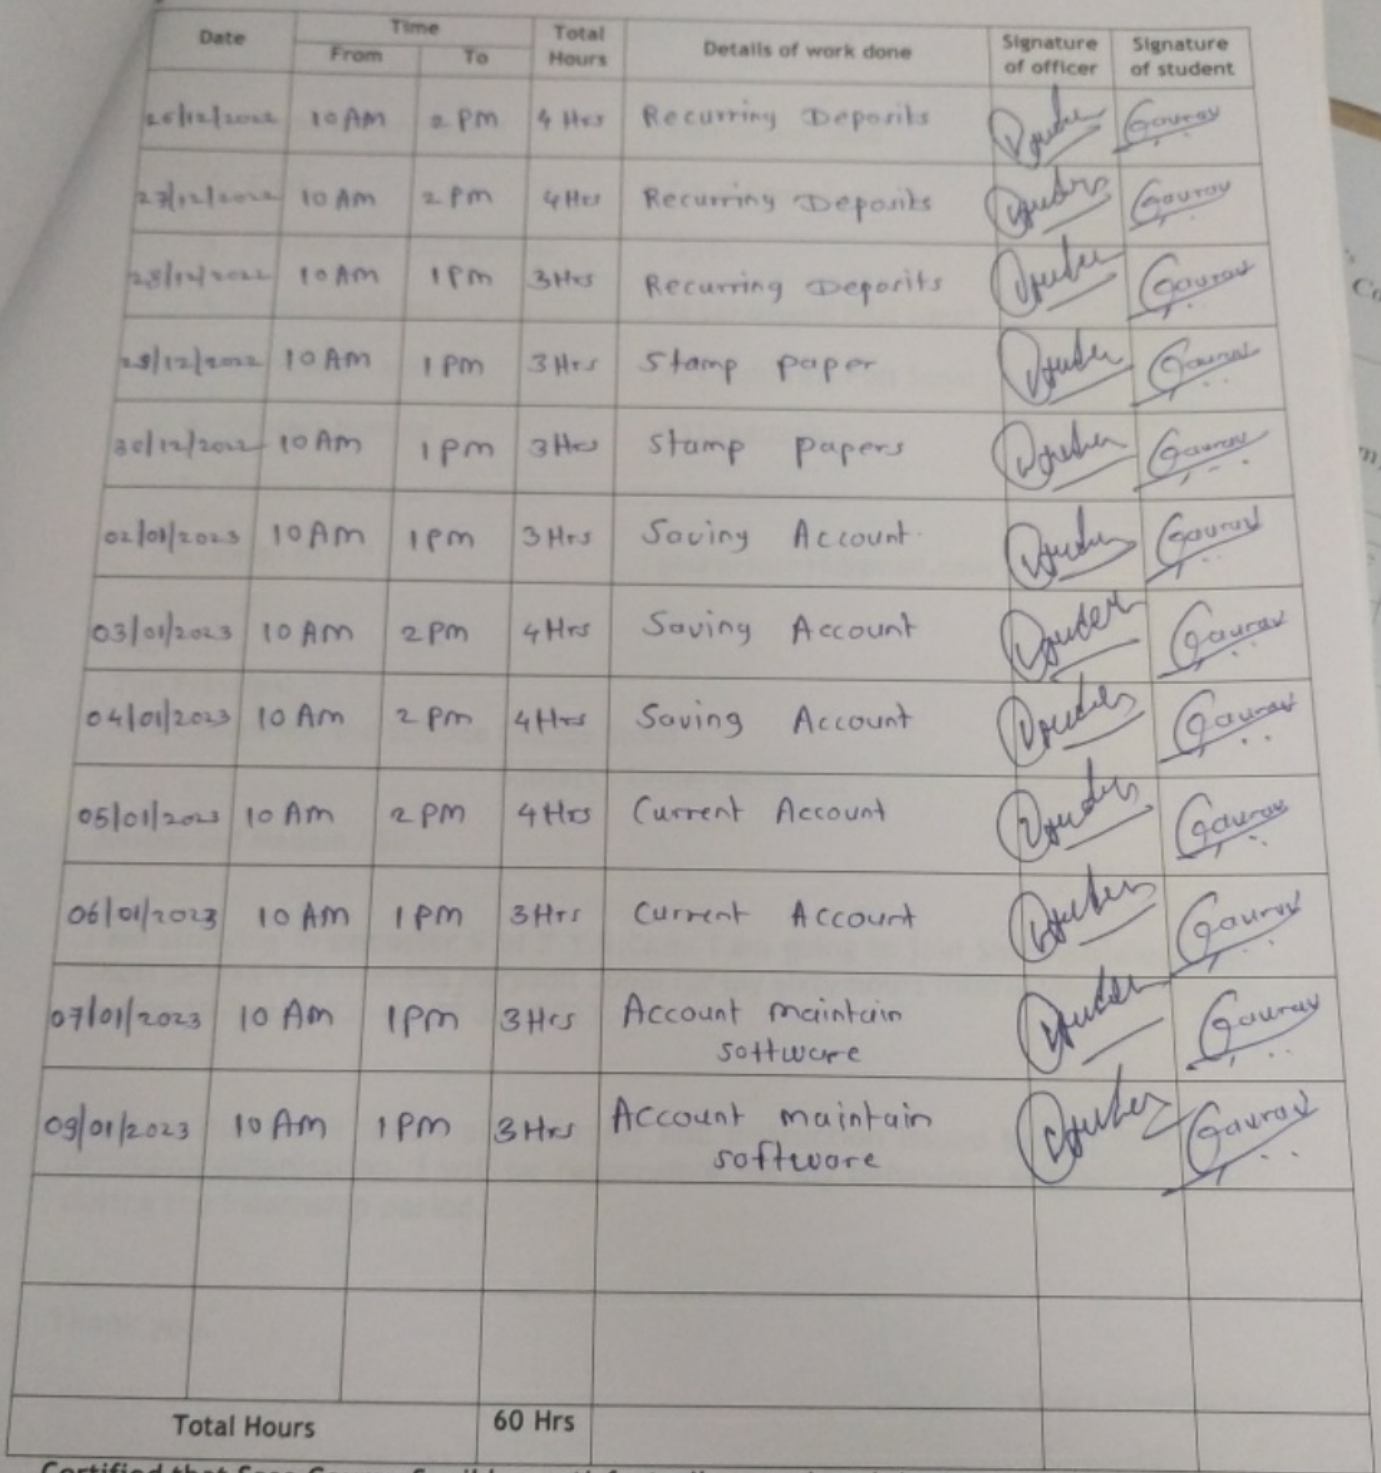 Date Time Total Hours Details of work done Signature of officer Signature of student
From To
26/12/2022 10 AM 2 PM 4 Hrs Recurring Deposits Gaurav
27/12/2022 10 AM 2 PM 4 Hrs Recurring Deposits Gaurav
28/12/2022 10 AM 1 PM 3 Hrs Recurring Deposits Gaurav
29/12/2022 10 AM 1 PM 3 Hrs Stamp paper Gaurav
30/12/2022 10 AM 1 PM 3 Hrs Stamp papers Gaurav
02/01/2023 10 AM 1 PM 3 Hrs Saving Account Gaurav
03/01/2023 10 AM 2 PM 4 Hrs Saving Account Gaurav
04/01/2023 10 AM 2 PM 4 Hrs Saving Account Gaurav
05/01/2023 10 AM 2 PM 4 Hrs Current Account Gaurav
06/01/2023 10 AM 1 PM 3 Hrs Current Account Gaurav
07/01/2023 10 AM 1 PM 3 Hrs Account maintain
software Gaurav
09/01/2023 10 AM 1 PM 3 Hrs Account maintain
software Gaurav
Total Hours 60 Hrs
Certified that